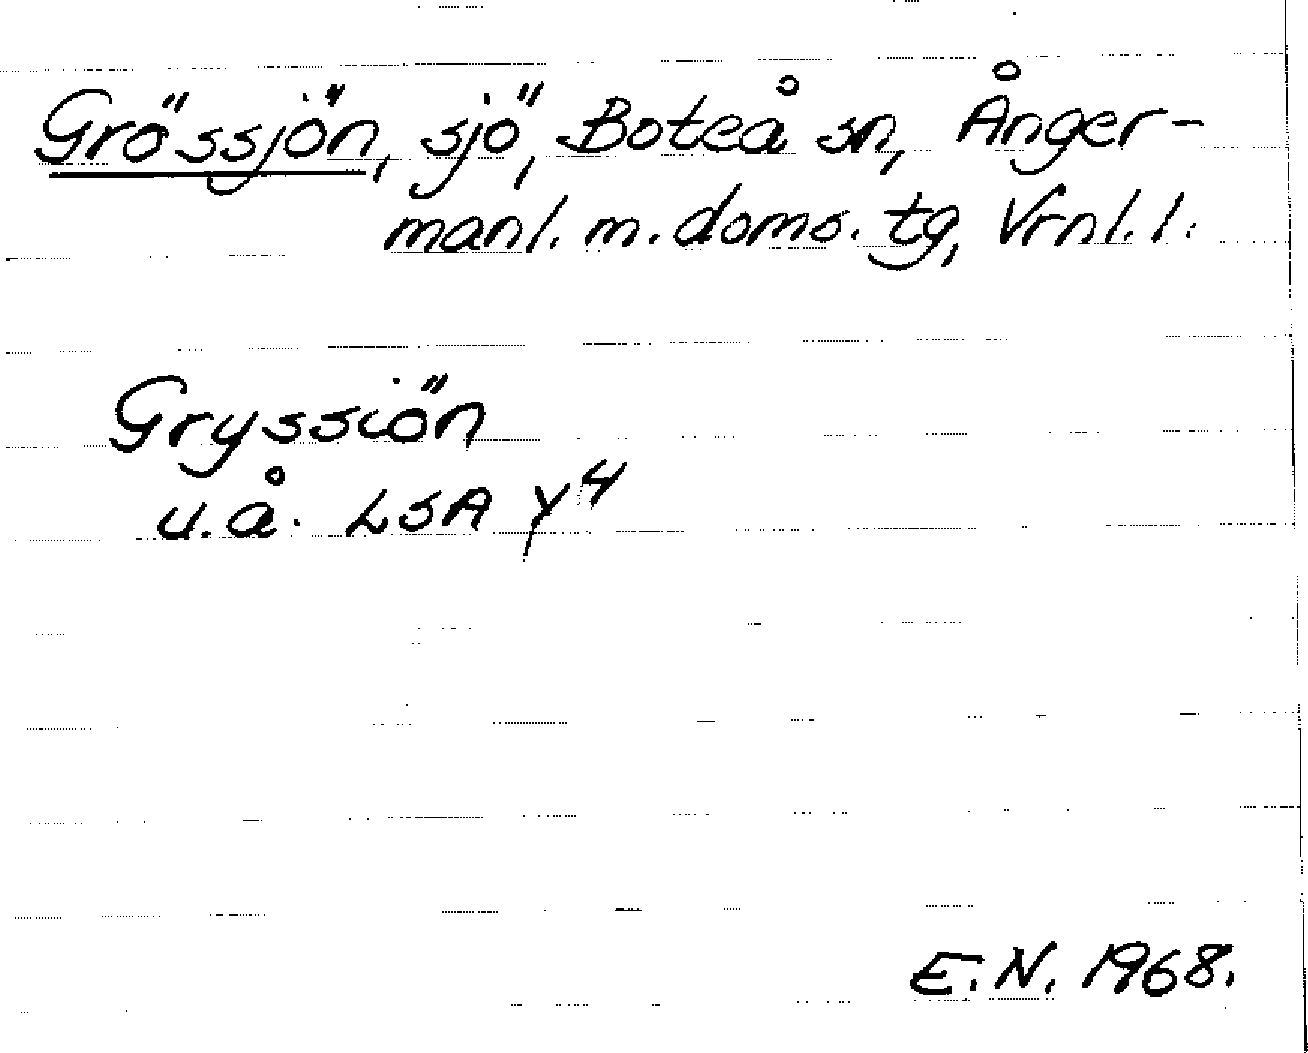 Grössjön, sjö, Boteå sn, Ånger-
manl. m. doms. tg, Vrnl. l.
Gryssiön
u.å. LSA Y4
E.N. 1968.